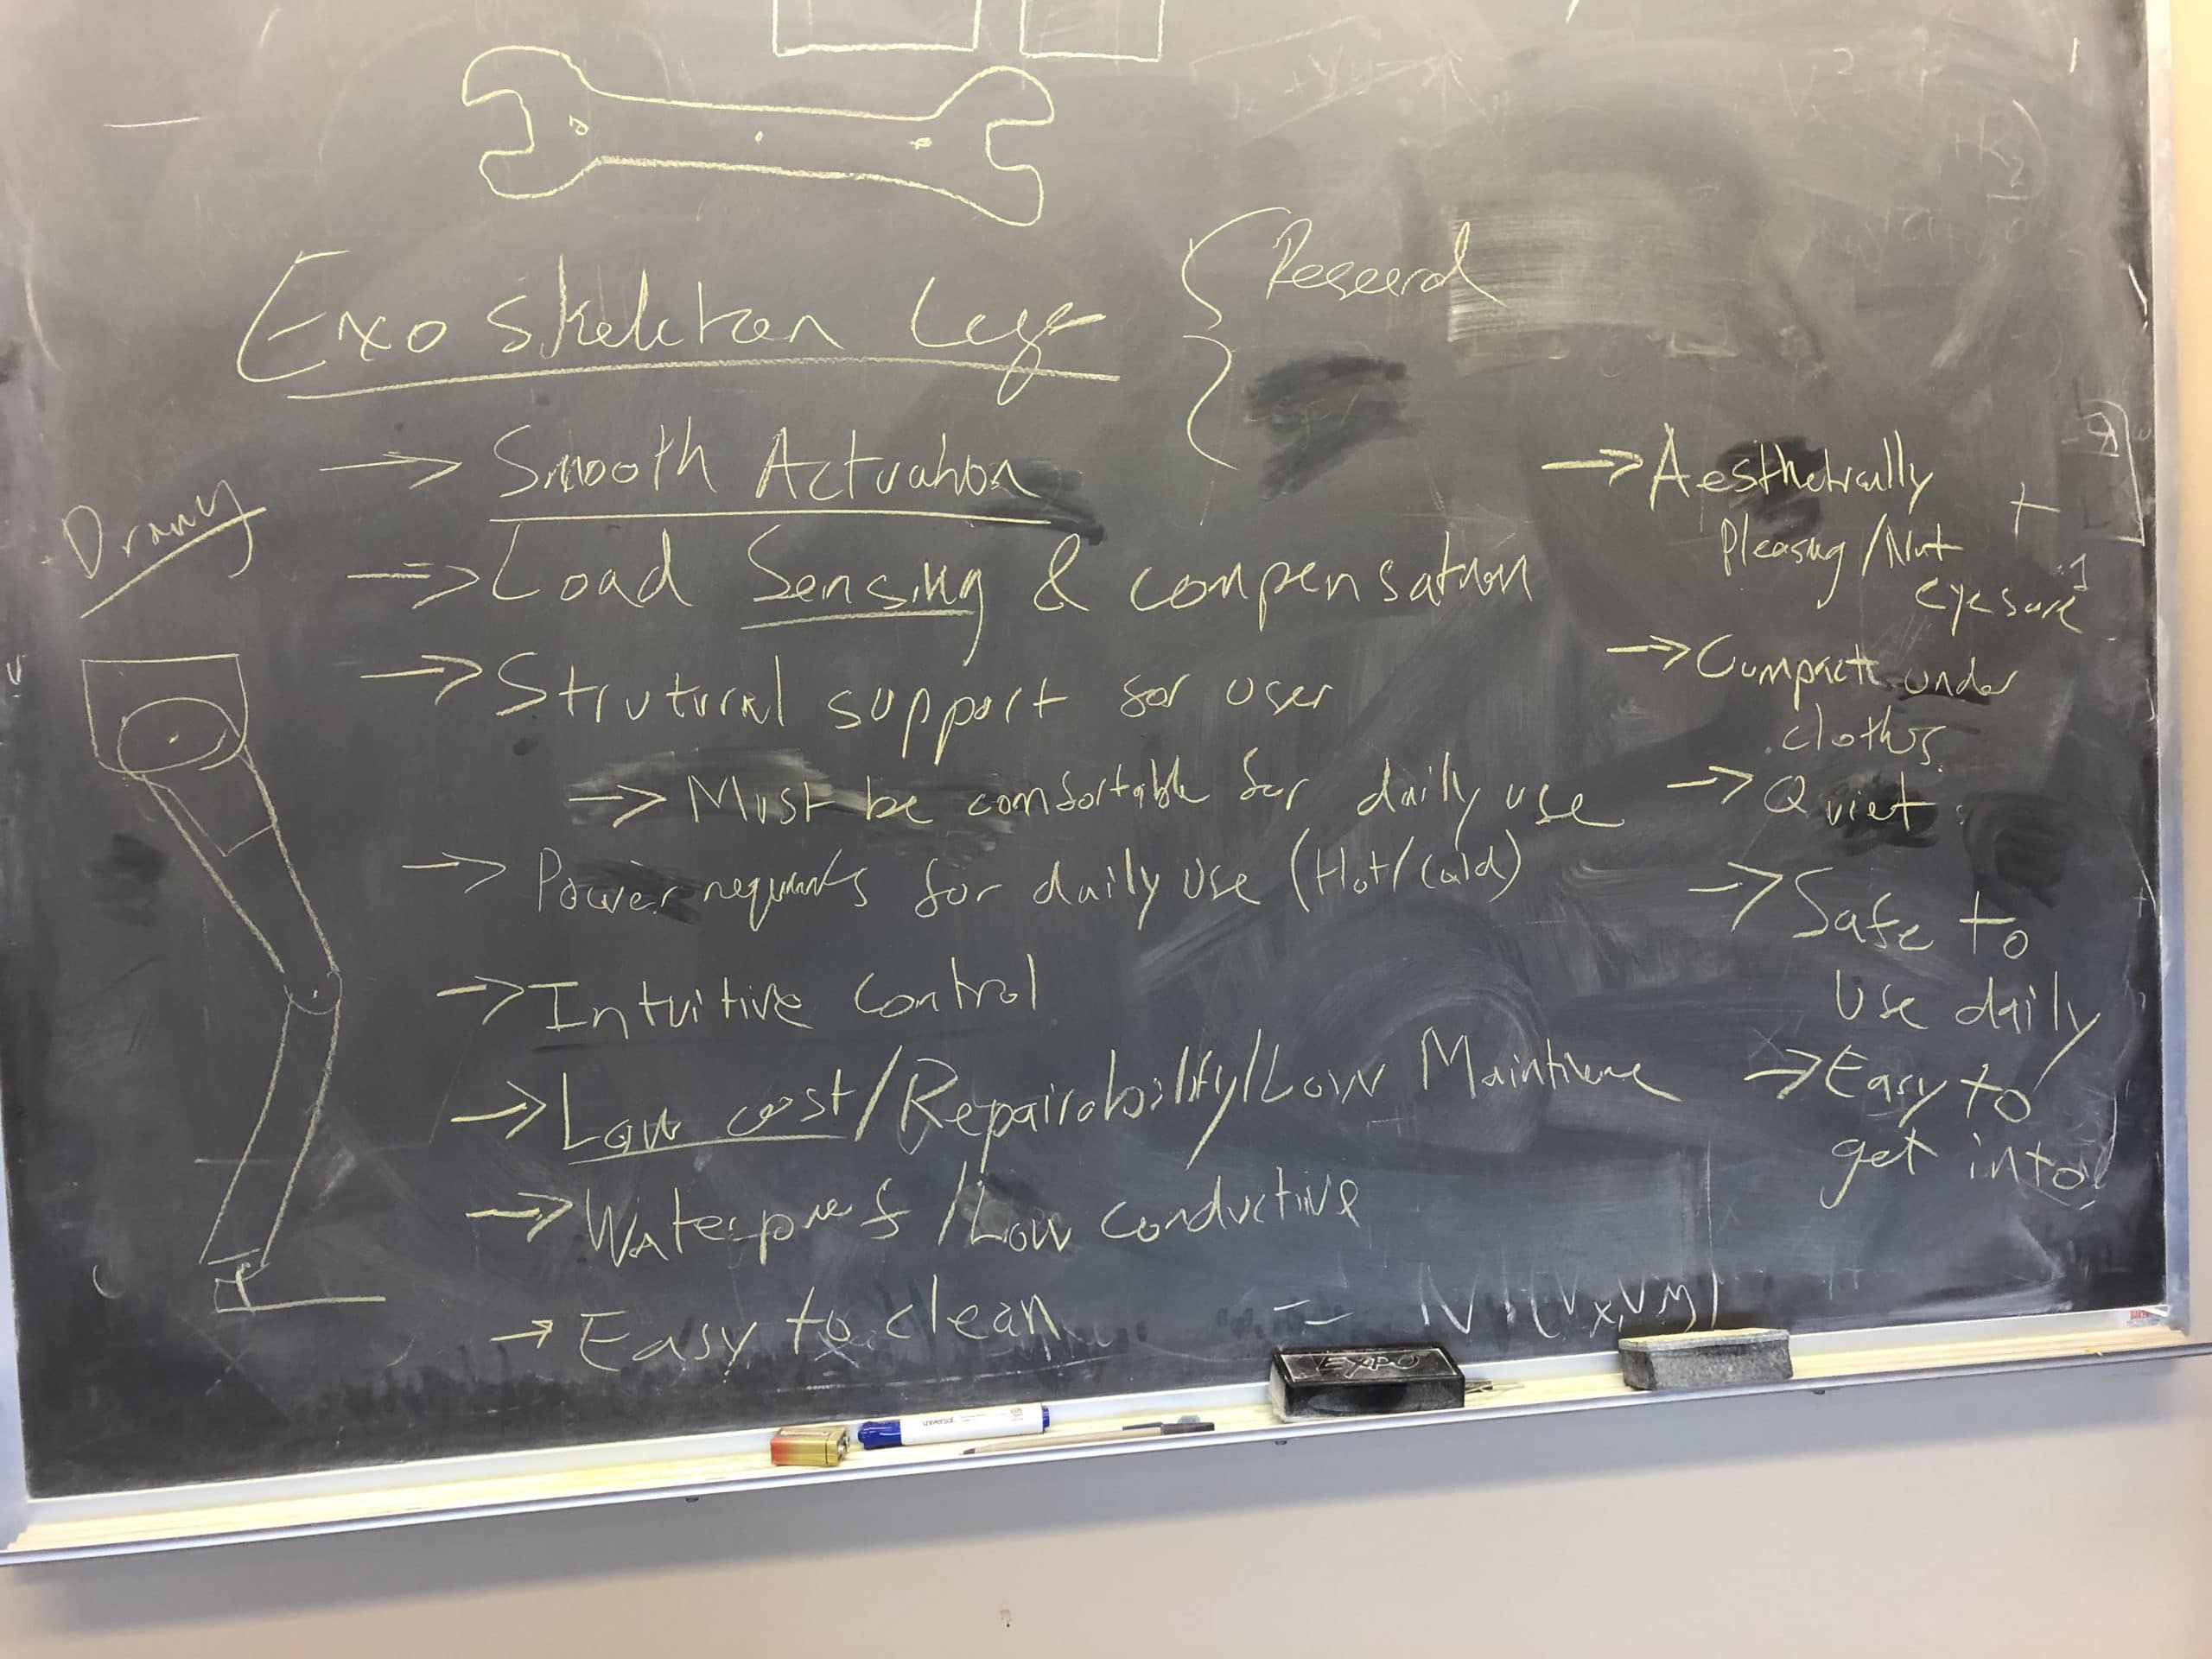 Exoskeleton Legs
Research
Drawing
→ Smooth Actuation
→ Load Sensing & compensation
→ Strutural support for user
→ Must be comfortable for daily use
→ Power requirments for daily use (Hot/Cold)
→ Intuitive control
→ Low cost/Repairability/Low Maintinence
→ Waterproof/Low conductive
→ Easy to clean
→ Aesthetically
Pleasing/Not
eyesore
→ Compact under
clothes
→ Quiet
→ Safe to
Use daily
→ Easy to
get into
EXPO
universal